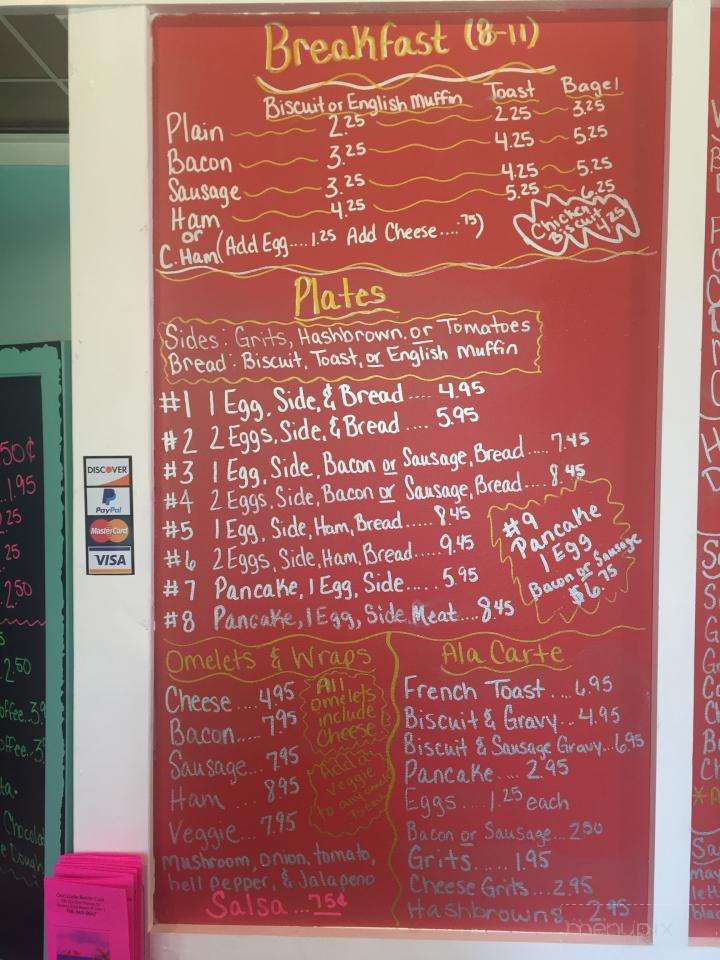 Breakfast (8-11)
Biscuit or English Muffin Toast Bagel
Plain 2.25 2.25 3.25
Bacon 3.25 4.25 5.25
Sausage 3.25 4.25 5.25
Ham or C. Ham 4.25 5.25 6.25
(Add Egg....1.25 Add Cheese.....75)
Chicken Biscuit 4.25
Plates
Sides: Grits, Hashbrown, or Tomatoes
Bread: Biscuit, Toast, or English Muffin
#1 1 Egg, Side, & Bread .... 4.95
#2 2 Eggs, Side, & Bread .... 5.95
#3 1 Egg, Side, Bacon or Sausage, Bread.... 7.45
#4 2 Eggs, Side, Bacon or Sausage, Bread.... 8.45
#5 1 Egg, Side, Ham, Bread..... 8.45
#6 2 Eggs, Side, Ham, Bread..... 9.45
#7 Pancake, 1 Egg, Side.... 5.95
#8 Pancake, 1 Egg, Side Meat.... 8.45
#9
Pancake
1 Egg
Bacon or Sausage
$6.75
Omelets & Wraps
Cheese .... 4.95
Bacon..... 7.95
Sausage... 7.95
Ham .... 8.95
Veggie... 7.95
Mushroom, onion, tomato,
bell pepper, & Jalapeno
Salsa ...75¢
All
omelets
include
Cheese
Add a
veggie
Ala Carte
French Toast .... 6.95
Biscuit & Gravy... 4.95
Biscuit & Sausage Gravy...6.95
Pancake .... 2.95
Eggs.... 1.25 each
Bacon or Sausage... 2.50
Grits..... 1.95
Cheese Grits....2.95
Hashbrowns 2.95
DISCOVER
PayPal
MasterCard
VISA
50¢
1.95
.25
.25
2.50
2.50
menupix